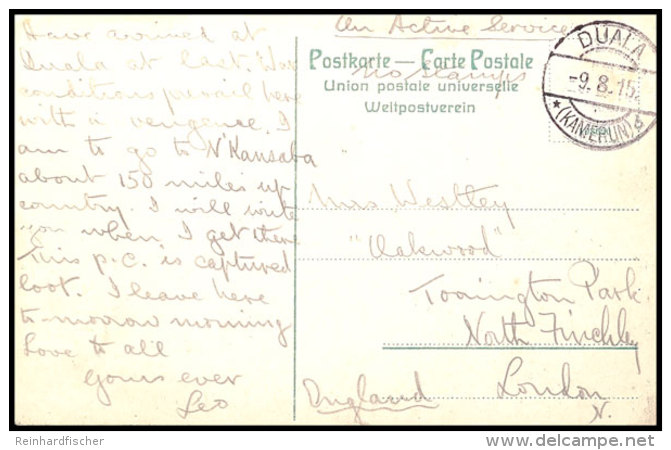 Have arrived at
Duala at last. War
conditions prevail here
with a vengence. I
am to go to N'Kansaba
about 150 miles up
country. I will write
you when I get there
This p.c. is captured
loot. I leave here
to-morrow morning
Love to all
Yours ever
Leo
On Active Service
Postkarte — Carte Postale
No stamps
Union postale universelle
Weltpostverein
DUALA
-9.8.15.
* (KAMERUN)
Mrs Westley
"Oakwood"
Torrington Park
North Finchley
London
N.
England
Reinhardfischer
delcampe.net